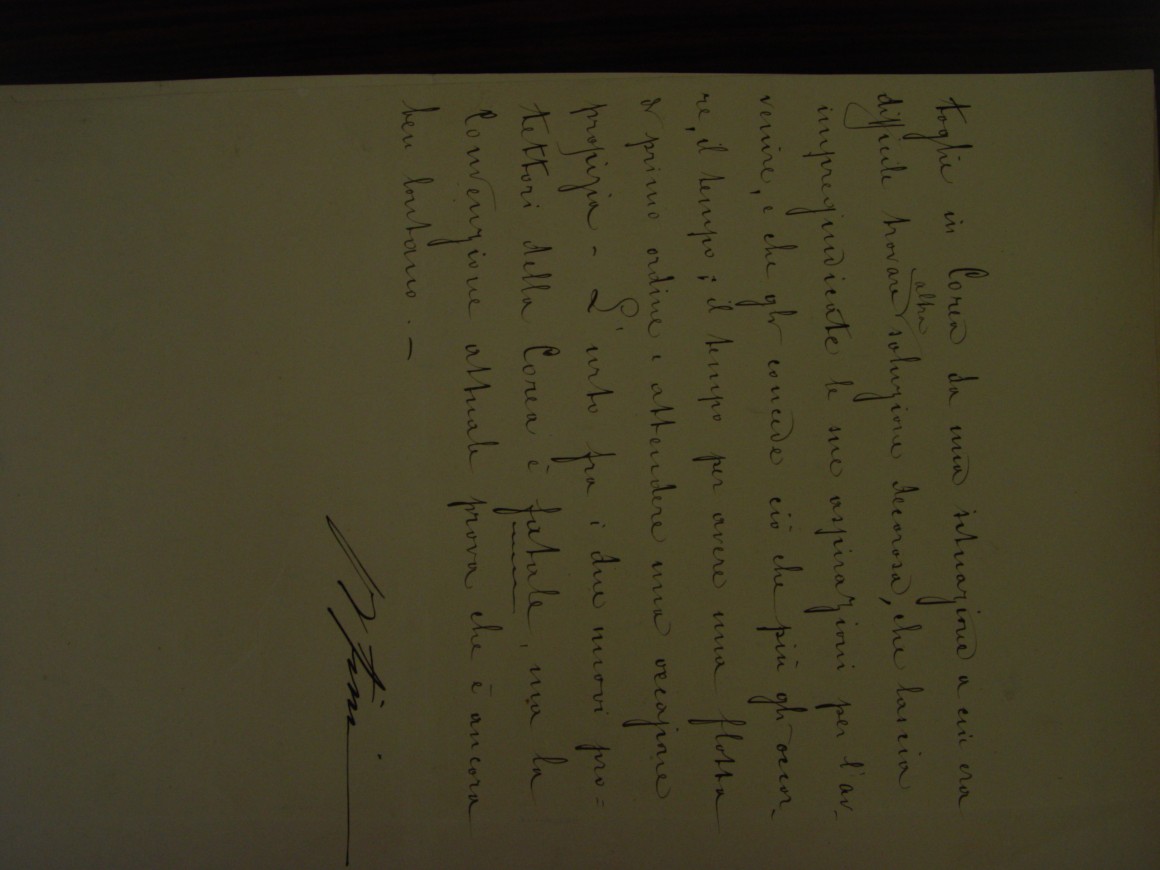 toglie in Corea da una situazione a cui era
difficile trovare altra soluzione decorosa, che lascia
impregiudicate le sue aspirazioni per l'av-
venire, e che gli concede ciò che più gli occor-
re, il tempo; il tempo per avere una flotta
di primo ordine e attendere una occasione
propizia - L'urto fra i due nuovi pro=
tettori della Corea è fatale, ma la
Convenzione attuale prova che è ancora
ben lontano. -